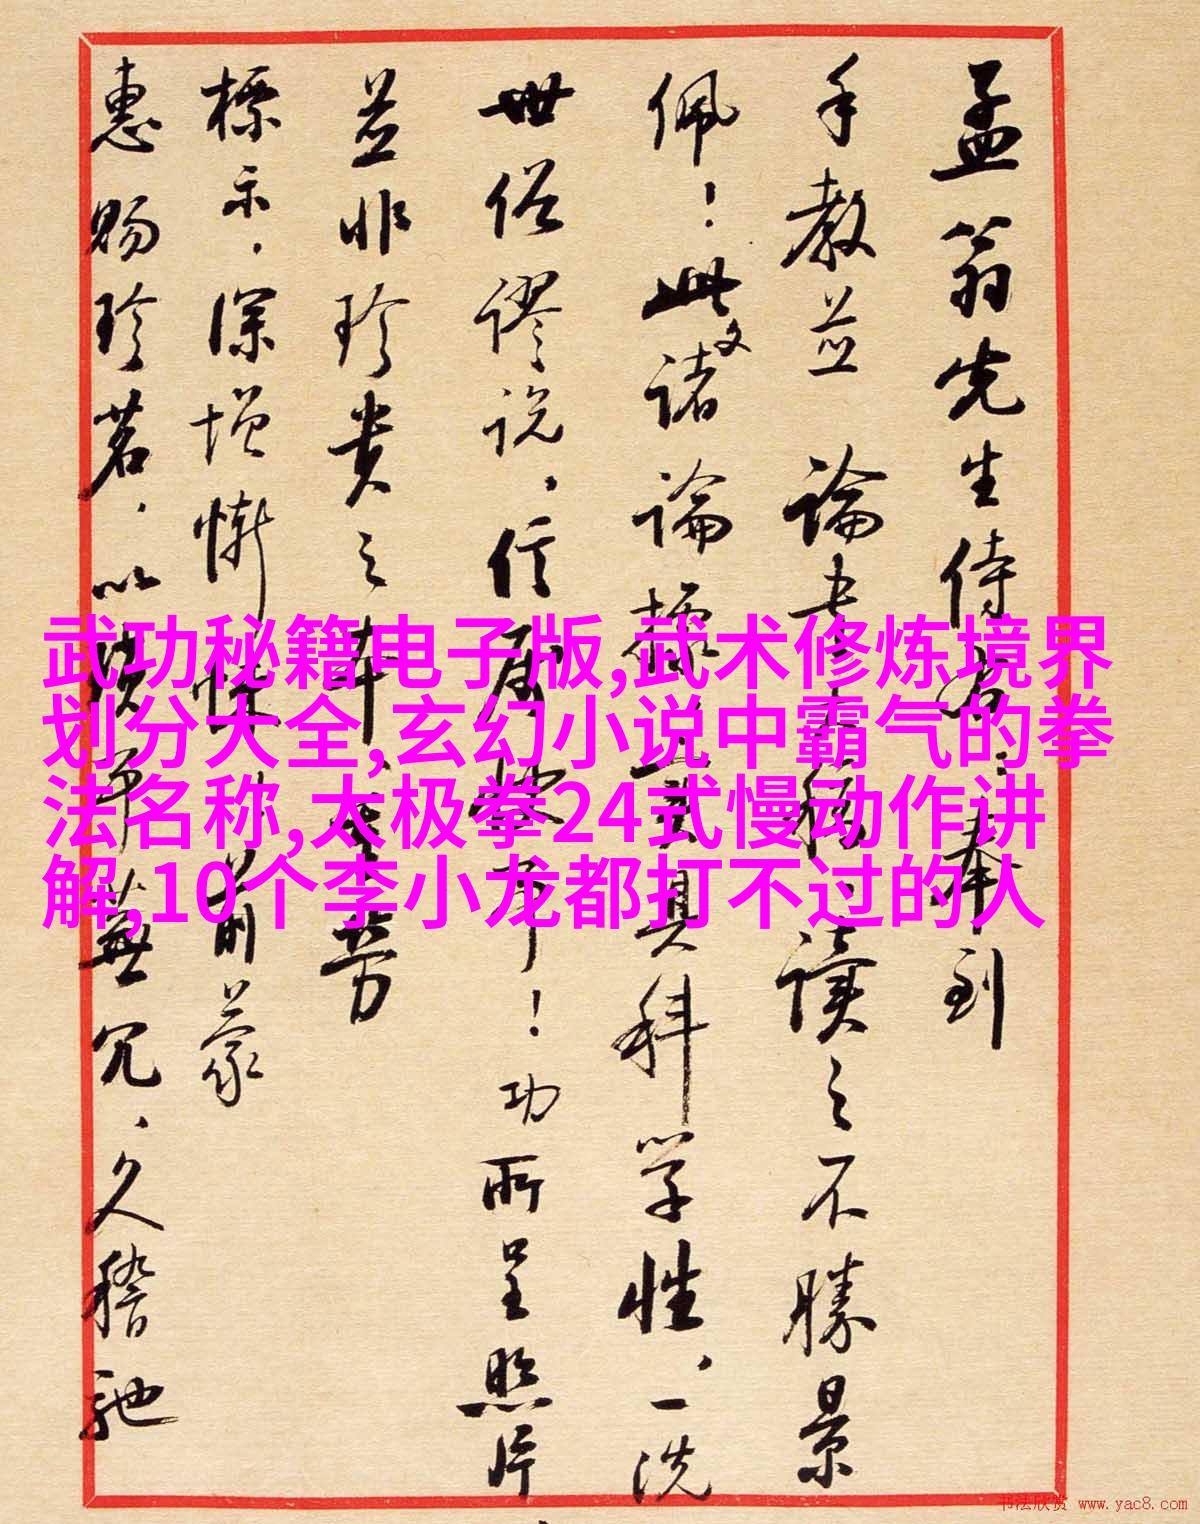 孟翁先生侍者:奉到
手教並論書大稿、读之不勝景
佩!此文诸論據
具科学性,一洗
世俗谬说,信属
!功所呈照片
並非珍贵之
芳
標示,深增惭
前蒙
惠賜珍茗,以
蕪冗,久稽馳
武功秘籍电子版,武术修炼境界
划分大全,玄幻小说中霸气的拳
法名称,太极拳24式慢动作讲
解,10个李小龙都打不过的人
书法欣赏 www.yac8.com